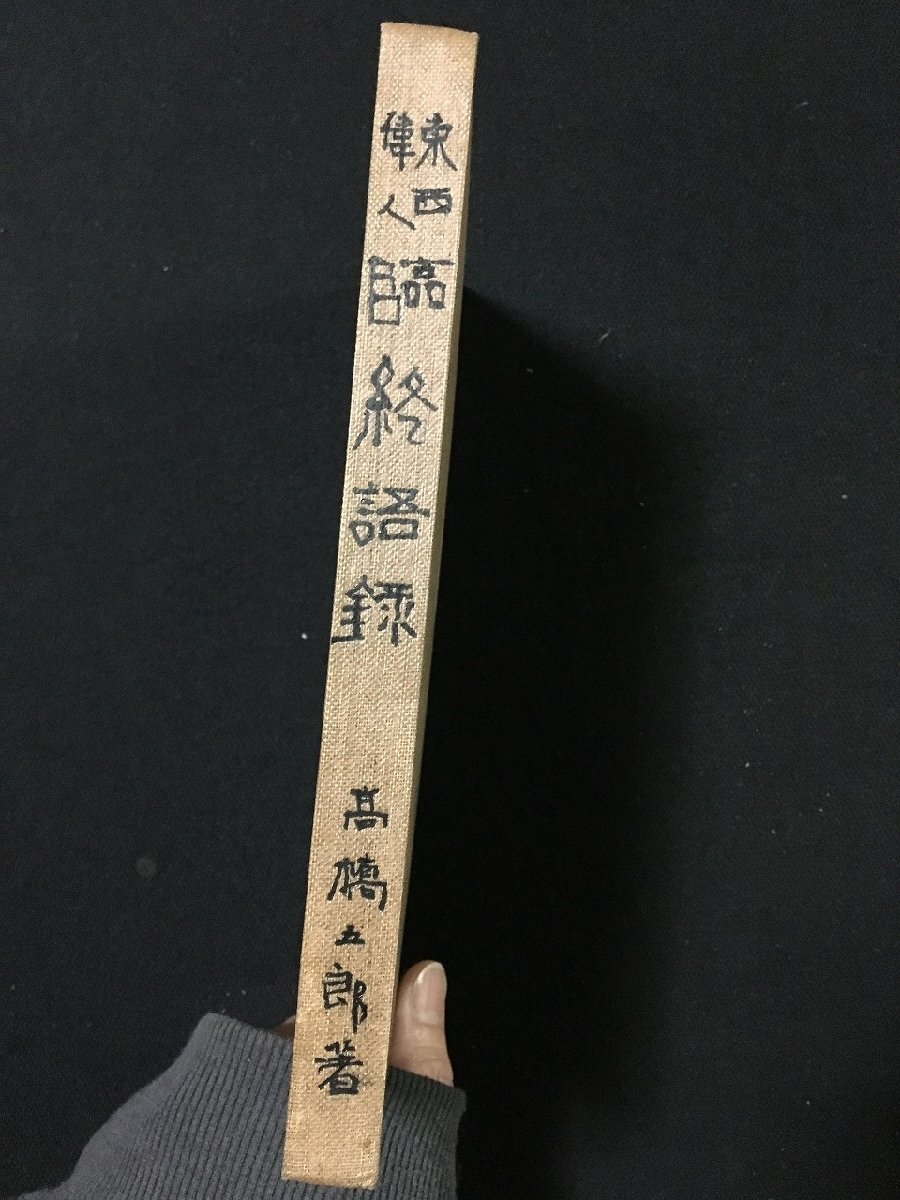 東西
偉人
臨終語録
高橋五郎著